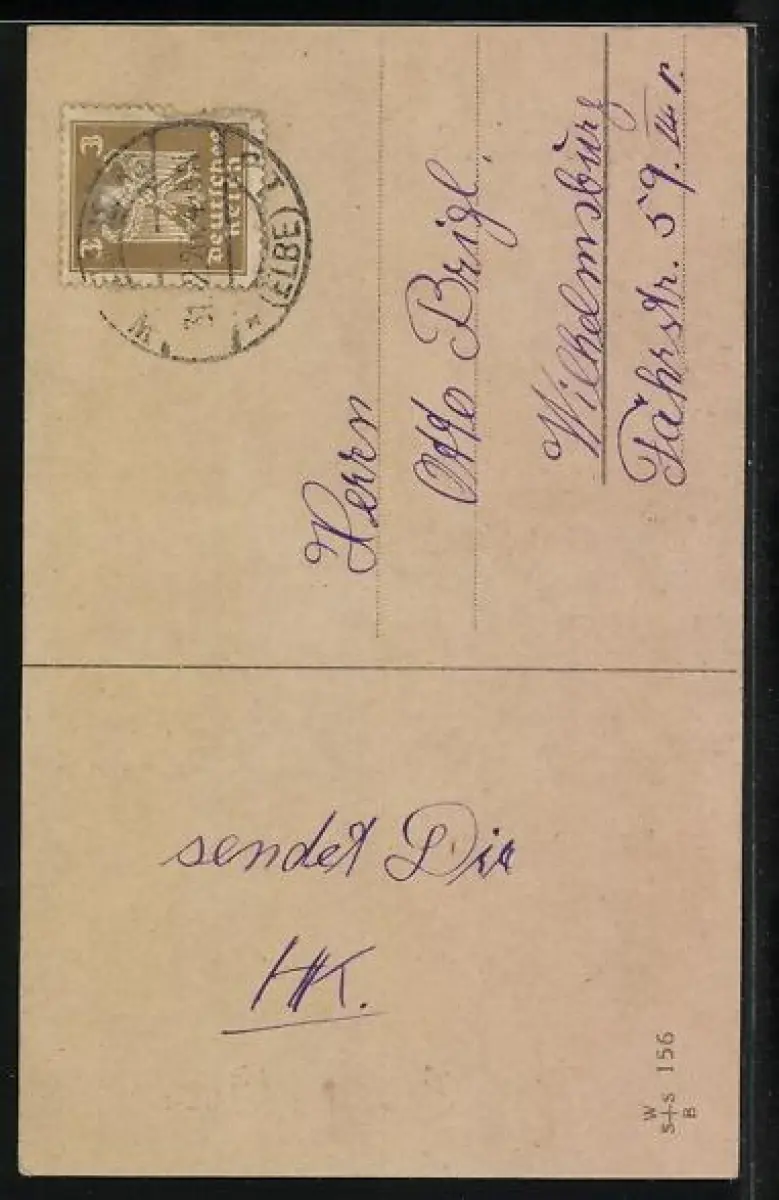 sendet Dir
HK.
Herrn
Otto Brigl.
Wilhelmsburg
Fährstr. 59. III r.
3
3
Deutsches
Reich
(ELBE)
W
S+S 156
B